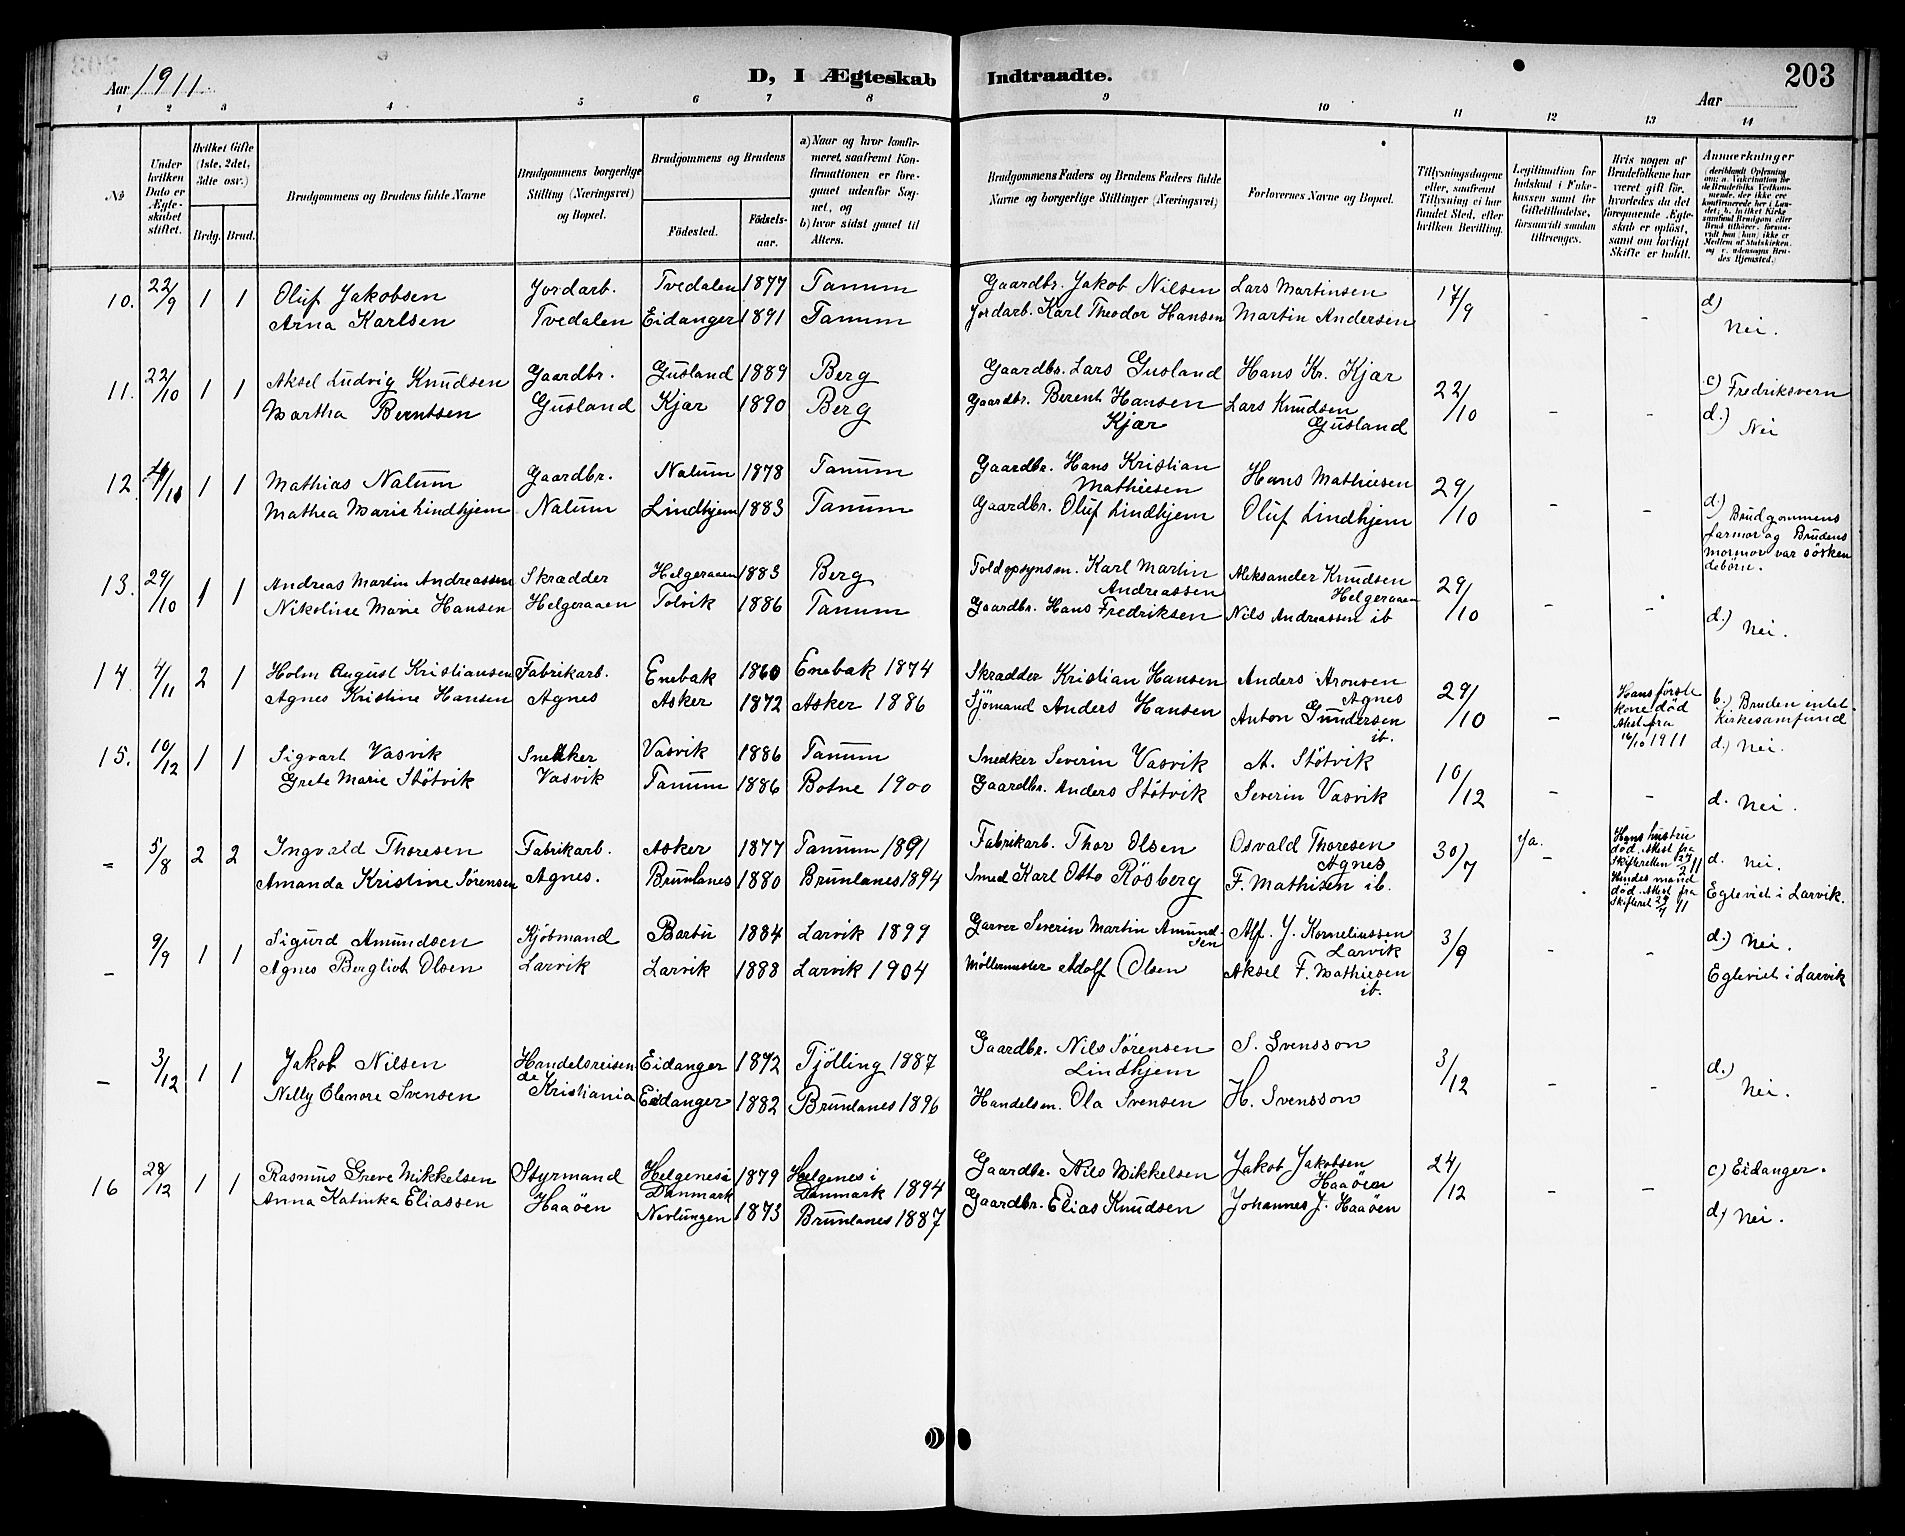 Aar 1911
D, I Ægteskab Indtraadte.
203
Aar
1 2 3 4 5 6 7 8 9 10 11 12 13 14
No
Under hvilken Dato er Ægteskabet stiftet.
Hvilket Gifte (1ste, 2det, 3dte osv.)
Brdg. Brud.
Brudgommens og Brudens fulde Navne
Brudgommens borgerlige Stilling (Næringsvei) og Bopæl.
Brudgommens og Brudens
Fødested.
Fødselsaar.
a) Naar og hvor konfirmeret, saafremt Konfirmationen er foregaaet udenfor Sognet, og
b) hvor sidst gaaet til Alters.
Brudgommens Faders og Brudens Faders fulde Navne og borgerlige Stillinger (Næringsvei)
Forlovernes Navne og Bopæl.
Tillysningsdagene eller, saafremt Tillysning ei har fundet Sted, efter hvilken Bevilling.
Legitimation for Indskud i Enkekassen samt for Giftetilladelse, forsaavidt saadan tiltrænges.
Hvis nogen af Brudefolkene har været gift før, hvorledes da det foregaaende Ægteskab er opløst, samt om lovligt Skifte er holdt.
Anmærkninger (deriblandt Oplysning om: a. Vakcination for de Brudefolks Vedkommende, der ikke ere konfirmerede her i Landet; b. hvilket Kirkesamfund Brudgom eller Brud tilhører, forsaavidt han (hun) ikke er Medlem af Statskirken, og c. udensogns Brudes Hjemsted.)
10. 22/9 1 1 Oluf Jakobsen Jordarb. Tvedalen 1877 Tanum Gaardbr. Jakob Nilsen Lars Martinsen 17/9 - - d)
Arna Karlsen Tvedalen Eidanger 1891 Tanum Jordarb. Karl Theodor Hansen Martin Andersen Nei.
11. 22/10 1 1 Aksel Ludvig Knudsen Gaardbr. Gusland 1889 Berg Gaardbr. Lars Gusland Hans Kr. Kjær 22/10 - - c) Fredriksvern
Martha Berntsen Gusland Kjær 1890 Berg Gaardbr. Berent Hansen Kjær Lars Knudsen Gusland d.) Nei
12. /10 1 1 Mathias Nalum Gaardbr. Nalum 1878 Tanum Gaardbr. Hans Kristian Mathiesen Hans Mathiesen 29/10 - -
Mathea Marie Lindhjem Nalum Lindhjem 1883 Tanum Gaardbr. Oluf Lindhjem Oluf Lindhjem d) Brudgommens farmor og Brudens mormor var søskendebørn.
13. 29/10 1 1 Andreas Martin Andreassen Skradder Helgeraaen 1883 Berg Toldopsynsm. Karl Martin Andreassen Aleksander Knudsen Helgeraaen 29/10 - -
Nikoline Marie Hansen Helgeraaen Tolvik 1886 Tanum Gaardbr. Hans Fredriksen Nils Andreassen ib d.) Nei.
14 4/11 2 1 Holm August Kristiansen Fabrikarb. Enebak 1860 Enebak 1874 Skradder Kristian Hansen Anders Aronsen Agnes 29/10 - Hans første kone død Atest fra 16/10 1911 b.) Bruden intet Kirkesamfund
Agnes Kristine Hansen Agnes Asker 1872 Asker 1886 Sjømand Anders Hansen Anton Gundersen ib. d.) Nei.
15. 10/12 1 1 Sigvart Vasvik Snekker Vasvik 1886 Tanum Snedker Severin Vasvik A. Støtvik 10/12 - -
Grete Marie Støtvik Vasvik Tanum 1886 Botne 1900 Gaardbr. Anders Støtvik Severin Vasvik d. Nei.
- 5/8 2 2 Ingvald Thoresen Fabrikarb. Asker 1877 Tanum 1891 Fabrikarb. Thor Olsen Osvald Thoresen Agnes 30/7 Ja. - Hans hustru død. Atest fra Skifteretten 27/2 11 d. Nei.
Amanda Kristine Sørensen Agnes. Brunlanes 1880 Brunlanes 1894 Smed Karl Otto Røsberg F. Mathisen ib. Hindes mand død. Atest fra Skifteret 29/7 11 Egteviet i Larvik.
- 9/9 1 1 Sigurd Amundsen Kjøbmand Barbu 1884 Larvik 1899 Garver Severin Martin Amundsen Alf. J. Korneliussen Larvik 3/9 - - d.) Nei.
Agnes Bergliot Olsen Larvik Larvik 1888 Larvik 1904 Møllermester Adolf Olsen Aksel F. Mathiesen ib. Egteviet i Larvik
- 3/12 1 1 Jakob Nilsen Handelsreisende Eidanger 1872 Tjølling 1887 Gaardbr. Nils Sørensen Lindhjem S. Svensson 3/12 - - d.)
Nelly Elenore Svensen Kristiania Eidanger 1882 Brunlanes 1896 Handelsm. Ola Svensen H. Svensson Nei.
16 28/12 1 1 Rasmus Greve Mikkelsen Styrmand Helgenes i Danmark 1879 Helgenes i Danmark 1894 Gaardbr. Nils Mikkelsen Jakob Jakobsen Haaøen 24/12 - - c) Eidanger.
Anna Katinka Eliassen Haaøen Nevlungen 1873 Brunlanes 1887 Gaardbr. Elias Knudsen Johannes J. Haaøen d) Nei.